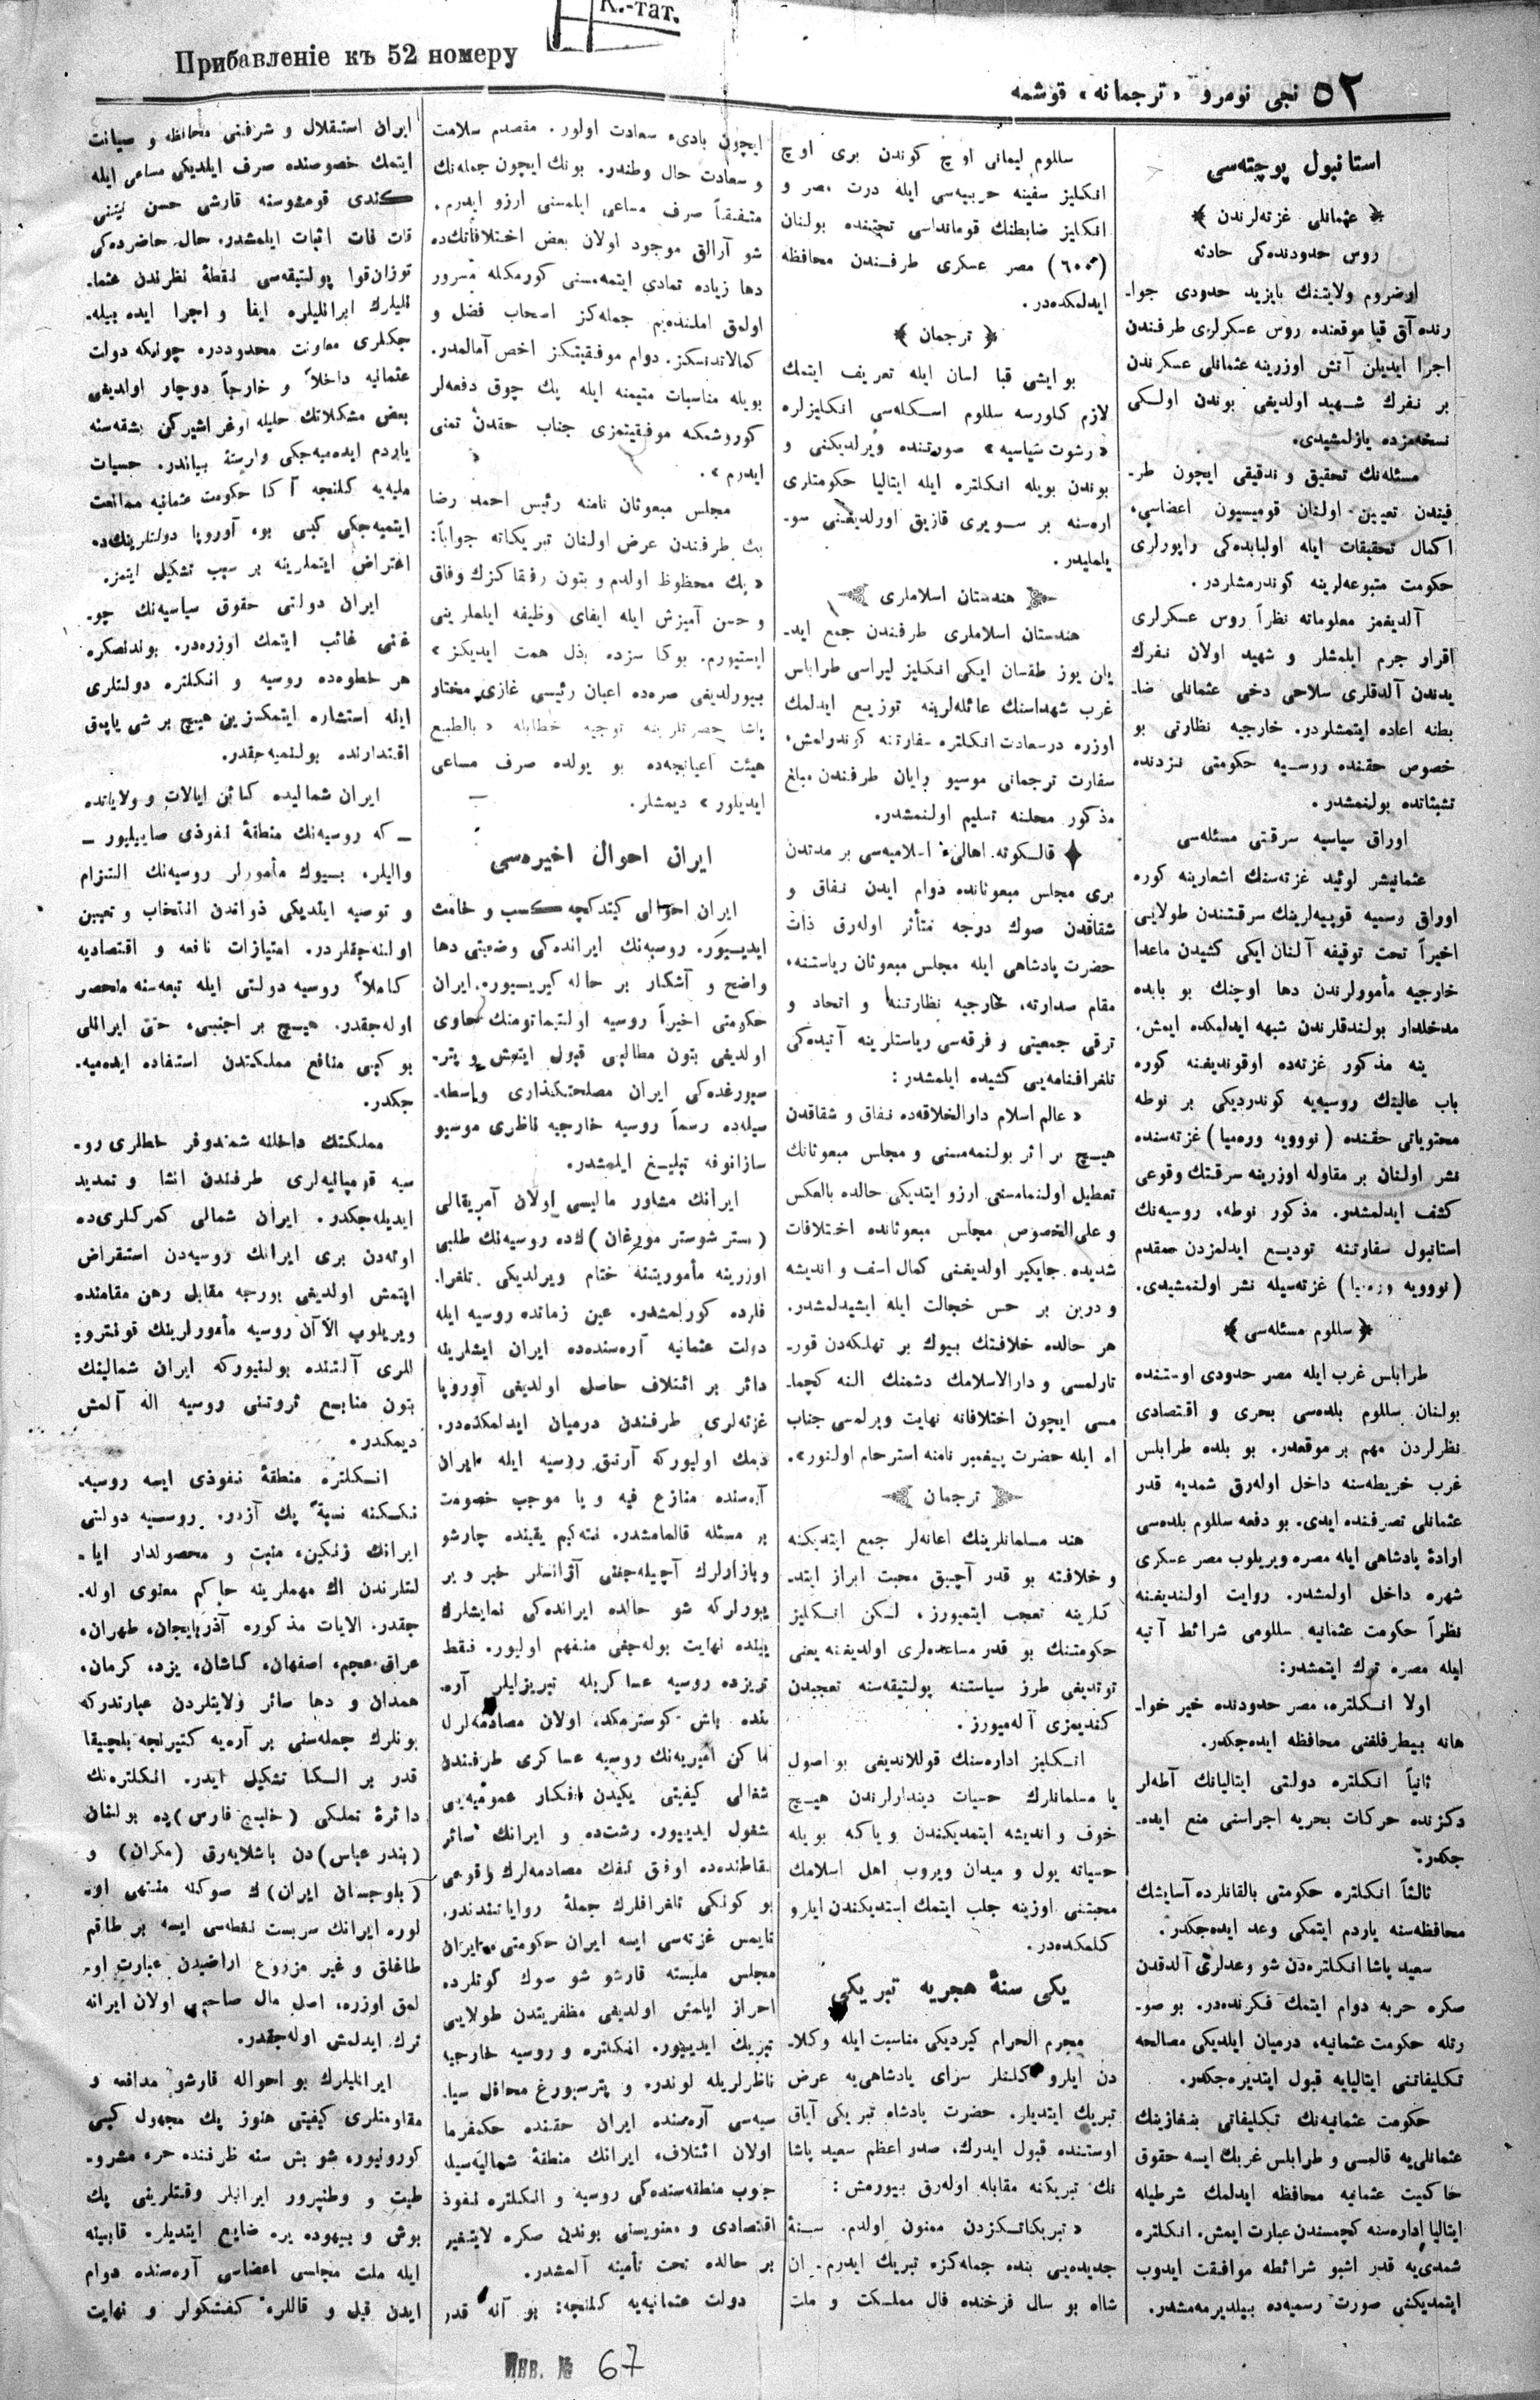 К.-тат.
Прибавленіе къ 52 номеру
٥٢ نجی نومرو «ترجمانه» قوشمه
استانبول پوچته‌سی
﴿ عثمانلی غزته‌لرندن ﴾
روس حدودنده‌کی حادثه
اوضروم ولایتنك بایزید حدودی جوا-
رنده آق قیا موقعنده روس عسکرلری طرفندن
اجرا ایدیلن آتش اوزرینه عثمانلی عسکرندن
بر نفرك شهید اولدیغی بوندن اولکی
نسخه‌مزده یازلمشیدی.
مسئله‌نك تحقیق و تدقیقی ایچون طر-
فیندن تعیین اولنان قومیسیون اعضاسی،
اکمال تحقیقات ایله اولبابده‌کی راپورلری
حکومت متبوعه‌لرینه کوندرمشلردر.
آلدیغمز معلوماته نظراً روس عسکرلری
اقرار جرم ایلمشلر و شهید اولان نفرك
یدندن آلدقلری سلاحی دخی عثمانلی ضا-
بطنه اعاده ایتمشلردر. خارجیه نظارتی بو
خصوص حقنده روسیه حکومتی نزدنده
تشبثاتده بولنمشدر.
اوراق سیاسیه سرقتی مسئله‌سی
عثمانیشر لوئید غزته‌سنك اشعارینه کوره
اوراق رسمیه قوپیه‌لرینك سرقتندن طولایی
اخیراً تحت توقیفه آلنان ایکی کشیدن ماعدا
خارجیه مأمورلرندن دها اوچنك بو بابده
مدخلدار بولندقلرندن شبهه ایدلمکده ایمش.
ینه مذکور غزته‌ده اوقوندیغنه کوره
باب عالینك روسیه‌یه کوندردیکی بر نوطه
محتویاتی حقنده (نوویه وره‌میا) غزته‌سنده
نشر اولنان بر مقاوله اوزرینه سرقتك وقوعی
کشف ایدلمشدر. مذکور نوطه، روسیه‌نك
استانبول سفارتنه تودیع ایدلمزدن مقدم
(نوویه وره‌میا) غزته‌سیله نشر اولنمشیدی.
﴿ سللوم مسئله‌سی ﴾
طرابلس غرب ایله مصر حدودی اوستنده
بولنان سللوم بلده‌سی بحری و اقتصادی
نظرلردن مهم بر موقعدر. بو بلده طرابلس
غرب خریطه‌سنه داخل اوله‌رق شمدیه قدر
عثمانلی تصرفنده ایدی. بو دفعه سللوم بلده‌سی
ارادۀ پادشاهی ایله مصره ویریلوب مصر عسکری
شهره داخل اولمشدر. روایت اولندیغنه
نظراً حکومت عثمانیه سللومی شرائط آتیه
ایله مصره ترك ایتمشدر:
اولا انکلتره، مصر حدودنده خیر خوا-
هانه بیطرفلغنی محافظه ایده‌جکدر.
ثانیاً انکلتره دولتی ایتالیانك آطه‌لر
دکزنده حرکات بحریه اجراسنی منع ایده-
جکدر:
ثالثاً انکلتره حکومتی بالقانلرده آسایشك
محافظه‌سنه یاردم ایتمکی وعد ایده‌جکدر.
سعید پاشا انکلتره‌دن شو وعدلری آلدقدن
صکره حربه دوام ایتمك فکرنده‌در. بو صو-
رتله حکومت عثمانیه، درمیان ایلدیکی مصالحه
تکلیفاتنی ایتالیایه قبول ایتدیره‌جکدر.
حکومت عثمانیه‌نك تکلیفاتی بنغازینك
عثمانلی‌یه قالمسی و طرابلس غربك ایسه حقوق
حاکمیت عثمانیه محافظه ایدلمك شرطیله
ایتالیا اداره‌سنه کچمسندن عبارت ایمش. انکلتره
شمدی‌یه قدر اشبو شرائطه موافقت ایدوب
ایتمدیکنی صورت رسمیه‌ده بیلدیرمه‌مشدر.
سللوم لیمانی اوچ کوندن بری اوچ
انکلیز سفینه حربیه‌سی ایله درت مصر و
انکلیز ضابطنك قوماندا‌سی تحتنده بولنان
(٦٠٠) مصر عسکری طرفندن محافظه
ایدلمکده‌در.
﴿ ترجمان ﴾
بو ایشی قبا لسان ایله تعریف ایتمك
لازم کلورسه سللوم اسکله‌سی انکلیزلره
«رشوت سیاسیه» صورتنده ویرلدیکنی و
بوندن بویله انکلتره ایله ایتالیا حکومتلری
اره‌سنه بر سویری قازیق اورلدیغنی سو-
یلملیدر.
هندستان اسلاملری
هندستان اسلاملری طرفندن جمع ایدـ
یلن یوز طقسان ایکی انکلیز لیراسی طرابلس
غرب شهداسنك عائله‌لرینه توزیع ایدلمك
اوزره درسعادت انکلتره سفارتنه کوندرلمش،
سفارت ترجمانی موسیو رایان طرفندن مبلغ
مذکور محلنه تسلیم اولنمشدر.
قالکوته اهالیء اسلامیه‌سی بر مدتدن
بری مجلس مبعوثانده دوام ایدن نفاق و
شقاقدن صوك درجه متأثر اوله‌رق ذات
حضرت پادشاهی ایله مجلس مبعوثان ریاستنه،
مقام صدارته، خارجیه نظارتنه و اتحاد و
ترقی جمعیتی و فرقه‌سی ریاستلرینه آتیده‌کی
تلغرافنامه‌یی کشیده ایلمشدر:
«عالم اسلام دارالخلافه‌ده نفاق و شقاقدن
هیچ بر اثر بولنمه‌مسنی و مجلس مبعوثانك
تعطیل اولنمامسنی ارزو ایتدیکی حالده بالعکس
و علی الخصوص مجلس مبعوثانده اختلافات
شدیده جایکیر اولدیغنی کمال اسف و اندیشه
و درین بر حس خجالت ایله ایشیدلمشدر.
هر حالده خلافتك بیوك بر تهلکه‌دن قور-
تارلمسی و دارالاسلامك دشمنك النه کچما-
مسی ایچون اختلافاته نهایت ویرلمسی جناب
اه ایله حضرت پیغمبر نامنه استرحام اولنور».
ترجمان
هند مسلمانلرینك اعانه‌لر جمع ایتدیکنه
و خلافته بو قدر آچیق محبت ابراز ایتدـ
کلرینه تعجب ایتمیورز، لکن انکلیز
حکومتنك بو قدر مساعده‌لری اولدیغنه یعنی
توتدیغی طرز سیاستنه پولتیقه‌سنه تعجبدن
کندیمزی آله‌میورز.
انکلیز اداره‌سنك قوللاندیغی بو اصول
یا مسلمانلرك حسیات دیندارلرندن هیچ
خوف و اندیشه ایتمدیکندن ویا که بویله
حسیاته یول و میدان ویروب اهل اسلامك
محبتنی اوزینه جلب ایتمك استدیکندن ایلرو
کلمکده‌در.
یکی سنۀ هجریه تبریکی
محرم الحرام کیردیکی مناسبت ایله وکلا-
دن ایلرو کلنلر سرای پادشاهی‌یه عرض
تبریك ایتدیلر. حضرت پادشاه تبریکی آیاق
اوستنده قبول ایدرك، صدر اعظم سعید پاشا
نك تبریکنه مقابله اوله‌رق بیورمش:
«تبریکاتکزدن ممنون اولدم. سنۀ
جدیده‌یی بنده جمله‌کزه تبریك ایدرم. ان
شااه بو سال فرخنده فال مملکت و ملت
ایچون بادیء سعادت اولور. مقصدم سلامت
و سعادت حال وطندر. بونك ایچون جمله‌نك
متفقاً صرف مساعی ایلمسنی ارزو ایدرم.
شو آرالق موجود اولان بعض اختلافاتك‌ده
دها زیاده تمادی ایتمه‌مسنی کورمکله مسرور
اولمق املنده‌یم جمله‌کز اصحاب فضل و
کمالاتدنسکز. دوام موفقیتکز اخص آمالمدر.
بویله مناسبات متیمنه ایله پك چوق دفعه‌لر
کوروشمکه موفقیتمزی جناب حقدن تمنی
ایدرم».
مجلس مبعوثان نامنه رئیس احمد رضا
بك طرفندن عرض اولنان تبریکاته جواباً:
«پك محظوظ اولدم و بتون رفقاکزك وفاق
و حسن آمیزش ایله ایفای وظیفه ایلملرینی
ایستیورم. بوکا سزده بذل همت ایدیکز»
بیوردلیغی صره‌ده اعیان رئیسی غازی مختار
پاشا حضرتلرینه توجیه خطابله «بالطبع
هیئت اعیانجه‌ده بو یولده صرف مساعی
ایدیلور» دیمشلر.
ایران احوال اخیره‌سی
ایران احوالی کیتدکچه کسب و خامت
ایدیسیور. روسیه‌نك ایرانده‌کی وضعیتی دها
واضح و آشکار بر حاله کیریسیور. ایران
حکومتی اخیراً روسیه اولتیماتومنك حاوی
اولدیغی بتون مطالبی قبول ایتمش و پتر-
سبورغده‌کی ایران مصلحتکذاری واسطه-
سیله‌ده رسماً روسیه خارجیه ناظری موسیو
سازانوفه تبلیغ ایلمشدر.
ایرانك مشاور مالیسی اولان آمریقالی
(مستر شوستر مورغان)ك‌ده روسیه‌نك طلبی
اوزرینه مأموریتنه ختام ویرلدیکی تلغرا-
فلرده کورلمشدر. عین زمانده روسیه ایله
دولت عثمانیه آره‌سنده‌ده ایران ایشلرینه
دائر بر ائتلاف حاصل اولدیغی آوروپا
غزته‌لری طرفندن درمیان ایدلمکده‌در.
دیمك اولیورکه آرتق روسیه ایله ایران
آره‌سنده منازع فیه و یا موجب خصومت
بر مسئله قالمامشدر. نته‌کیم یقینده چارشو
و بازارلرك آچیله‌جغنی آژانسلر خبر ویر
یورلرکه شو حالده ایرانده‌کی نمایشلرك
بینده نهایت بوله‌جغی منفهم اولیور. فقط
تبریزده روسیه عساکریله تبریزلیلر آره-
سنده باش کوسترمکده اولان مصادمه‌لرله
اماکن امیریه‌نك روسیه عساکری طرفندن
شغالی کیفیتی یکیدن افکار عمومیه‌یی
شغول ایدییور. رشت‌ده و ایرانك سائر
نقاطنده‌ده اوفق تفك مصادمه‌لرك وقوعی
بو کونکی تلغرافلرك جملۀ روایاتندندر.
تایمس غزته‌سی ایسه ایران حکومتی ایران
مجلس ملیسنه قارشو شو صوك کونلرده
احراز ایلمش اولدیغی مظفریتدن طولایی
تبریك ایدییور. انکلتره و روسیه خارجیه
ناظرلریله لوندره و پترسبورغ محافل سیا-
سیه‌سی آره‌سنده ایران حقنده حکمفرما
اولان ائتلاف، ایرانك منطقۀ شمالیه‌سیله
جنوب منطقه‌سنده‌کی روسیه و انکلتره نفوذ
اقتصادی و معنویسنی بوندن صکره لایتغیر
بر حالده تحت تأمینه آلمشدر.
دولت عثمانیه‌یه کلنجه: بو آنه قدر
ایران استقلال و شرفنی محافظه و صیانت
ایتمك خصوصنده صرف ایلدیکی مساعی ایله
کندی قومشوسنه قارشی حسن نیتنی
قات قات اثبات ایلمشدر. حال حاضرده‌کی
توزان‌قوا پولتیقه‌سی نقطۀ نظرندن عثما-
نلیلرك ایرانلیلره ایفا و اجرا ایده بیله-
جکلری معاونت محدوددره چونکه دولت
عثمانیه داخلاً و خارجاً دوچار اولدیغی
بعض مشکلاتك حلیله اوغراشیرکن بشقه‌سنه
یاردم ایده‌میه‌جکی وارسته بیاندر. حسیات
ملیه‌یه کلنجه آکا حکومت عثمانیه ممانعت
ایتمیه‌جکی کبی بو، آوروپا دولتلرینك‌ده
اعتراض ایتملرینه بر سبب تشکیل ایتمز.
ایران دولتی حقوق سیاسیه‌نك چو-
غنی غائب ایتمك اوزره‌در. بوندنصکره
هر خطوه‌ده روسیه و انکلتره دولتلری
ایله استشاره ایتمکسزین هیچ بر شی یاپمق
اقتدارنده بولنمیه‌جقدر.
ایران شمالیده کائن ایالات و ولایاتده
ـ که روسیه‌نك منطقۀ نفوذی صاییلیور ـ
والیلر، بیوك مأمورلر روسیه‌نك التزام
و توصیه ایتدیکی ذواتدن انتخاب و تعیین
اولنه‌جقلردر. امتیازات نافعه و اقتصادیه
کاملاً روسیه دولتی ایله تبعه‌سنه منحصر
اوله‌جقدر. هیچ بر اجنبی، حتی ایرانلی
بو کبی منافع مملکتدن استفاده ایده‌میه-
جکدر.
مملکتك داخلنه شمندوفر خطلری رو-
سیه قومپانیه‌لری طرفندن انشا و تمدید
ایدیله‌جکدر. ایران شمالی کمرکلری‌ده
اوته‌دن بری ایرانك روسیه‌دن استقراض
ایتمش اولدیغی بورجه مقابل رهن مقامنده
ویریلوب الآن روسیه مأمورلرینك قونترو-
للری آلتنده بولنیورکه ایران شمالینك
بتون منابع ثروتنی روسیه اله آلمش
دیمکدر.
انکلتره منطقۀ نفوذی ایسه روسیه-
نکنکنه نسبةً پك آزدر. روسیه دولتی
ایرانك زنکین، منبت و محصولدار ایا-
لتلرندن اك مهملرینه حاکم معنوی اوله-
جقدر. الایات مذکوره آذربایجان، طهران،
عراق عجم، اصفهان، کاشان، یزد، کرمان،
همدان و دها سائر ولایتلردن عبارتدرکه
بونلرك جمله‌سنی بر آره‌یه کتیرنجه بلچیقا
قدر بر الکا تشکیل ایدر. انکلتره‌نك
دائرۀ تملکی (خلیج فارس)ده بولنان
(بندر عباس)دن باشلایه‌رق (مکران) و
(بلوجستان ایران)ك صوکنه منتهی او-
لوره ایرانك سربست نقطه‌سی ایسه بر طاقم
طاغلق و غیر مزروع اراضیدن عبارت او-
لمق اوزره، اصل مال صاحبی اولان ایرانه
ترك ایدلمش اوله‌جقدر.
ایرانلیلرك بو احواله قارشو مدافعه و
مقاومتلری کیفیتی هنوز پك مجهول کبی
کورونیور، شو بش سنه ظرفنده حره مشرو-
طیت و وطنپرور ایرانلر وقتلرینی پك
بوش و بیهوده یره ضایع ایتدیلر، قابینه
ایله ملت مجلسی اعضاسی آره‌سنده دوام
ایدن قیل و قاللره کفتکولر و نهایت
Инв. № 67